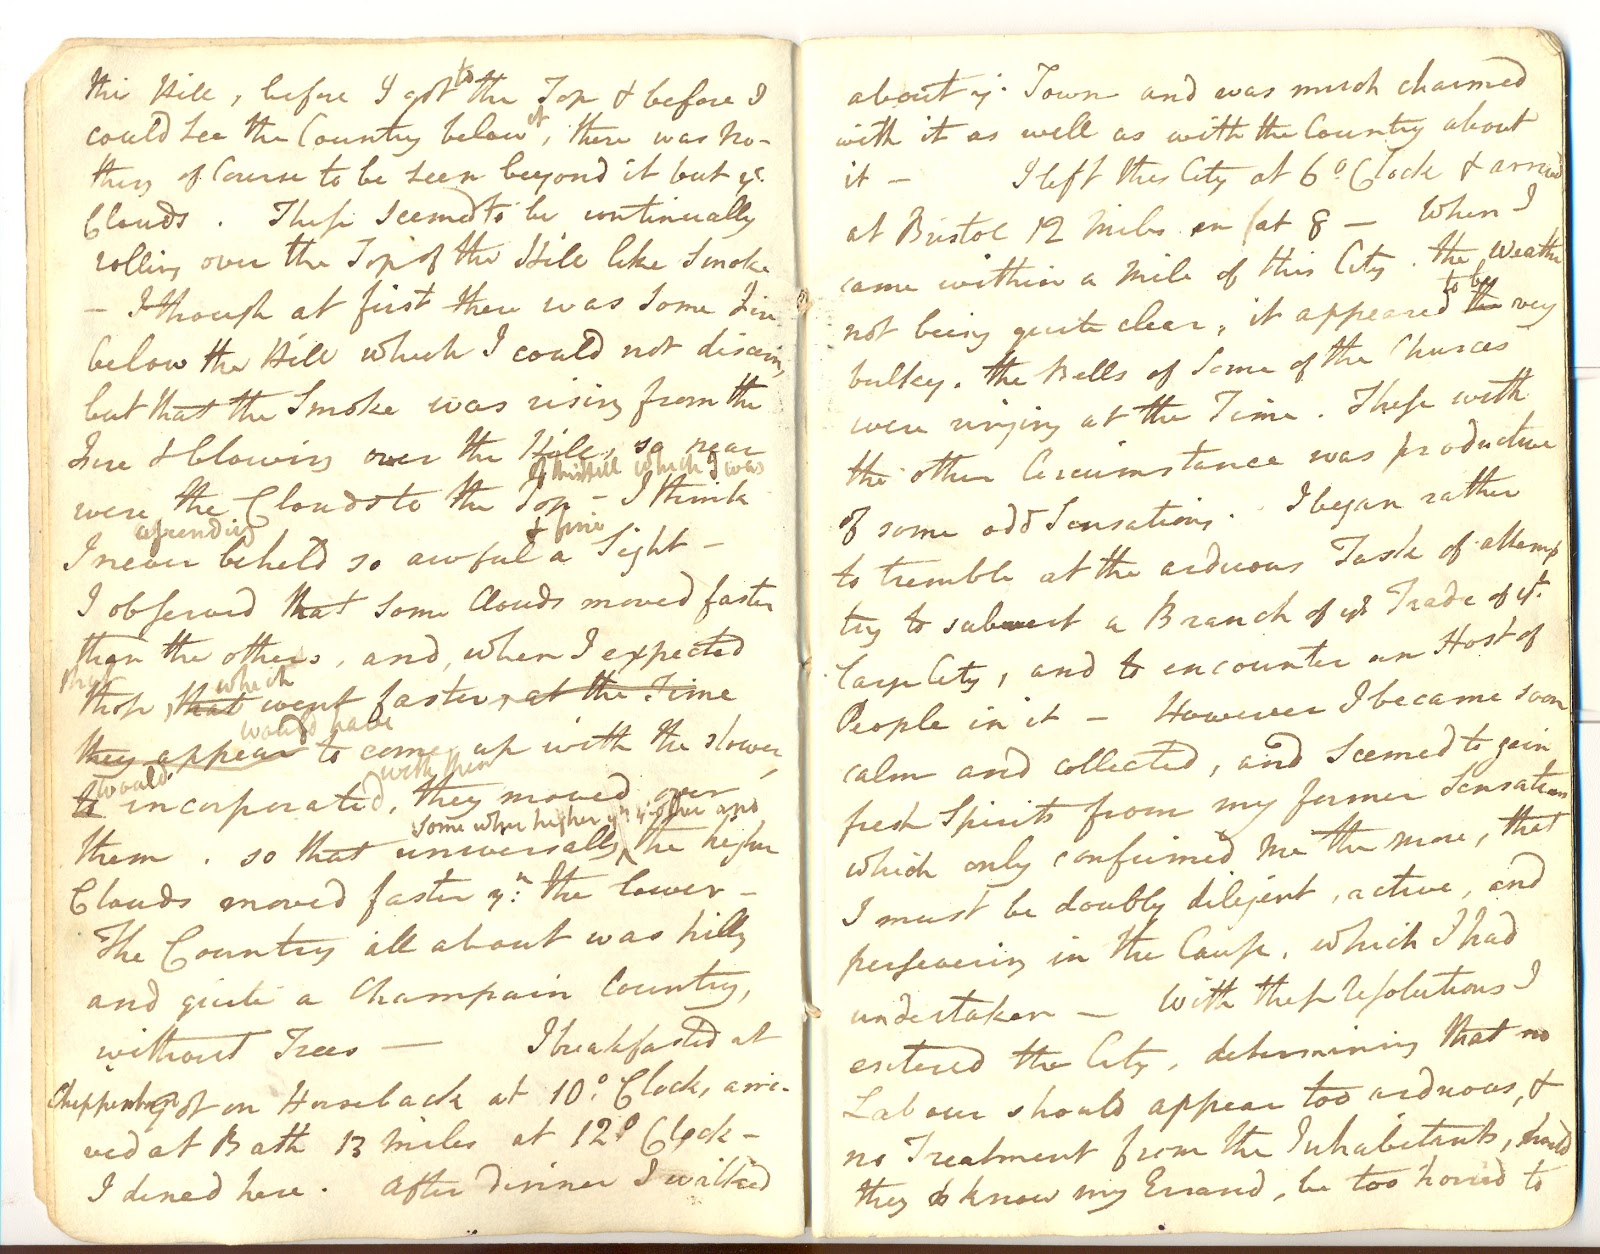 this Hill, before I got to the Top & before I
could see the Country below it, there was no-
thing of Course to be seen beyond it but ye
Clouds. These seemed to be continually
rolling over the Top of the Hill like Smoke
– I though at first there was some Fire
below the Hill which I could not discern,
but that the Smoke was rising from the
Fire & blowing over the Hill, so near
of this Hill which I was
were the Clouds to the Top – I think
ascending & fine
I never beheld so awful a Sight –
I observed that some Clouds moved faster
than the others, and, when I expected
that which
those, that went faster, at the Time
would have
they appear to come up with the slower,
would with them
to incorporated, they moved over
some what higher yn ye other and
them. so that universally the higher
Clouds moved faster yn: the lower –
The Country all about was hilly
and quite a Champain Country,
without Trees — I breakfasted at
Chippenham got on Horseback at 10o Clock, arri-
ved at Bath 13 Miles at 12o Clock –
I dined here. After dinner I walked
about ye Town and was much charmed
with it as well as with the Country about
it – I left this City at 6o Clock & arrived
at Bristol 12 Miles at 8 – When I
came within a Mile of this City. the Weather
to be
not being quite clear, it appeared the very
bulkey. the Bells of some of the Churces
were ringing at the Time. These with
the other Circumstance was productive
of some odd Sensations. I began rather
to tremble at the arduous Task of attemp
ting to subvert a Branch of ye Trade of yt
large City, and to encounter an Host of
People in it – However I became soon
calm and collected, and seemed to gain
fresh Spirits from my former Sensations
which only confirmed me the more, that
I must be doubly diligent, active, and
persevering in the Cause, which I had
undertaken — With these resolutions I
entered the City, determining that no
Labour should appear too arduous, &
no Treatment from the Inhabitants, should
they know my Errand, be too horrid to